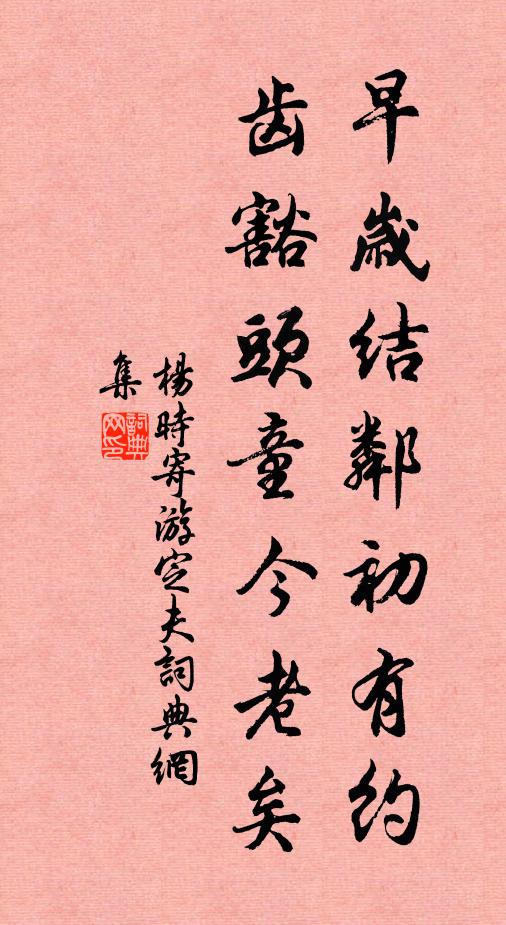 早歲结鄰初有约
齿豁頭童今老矣
楊時寄游定夫詞典網
集
詞典网印